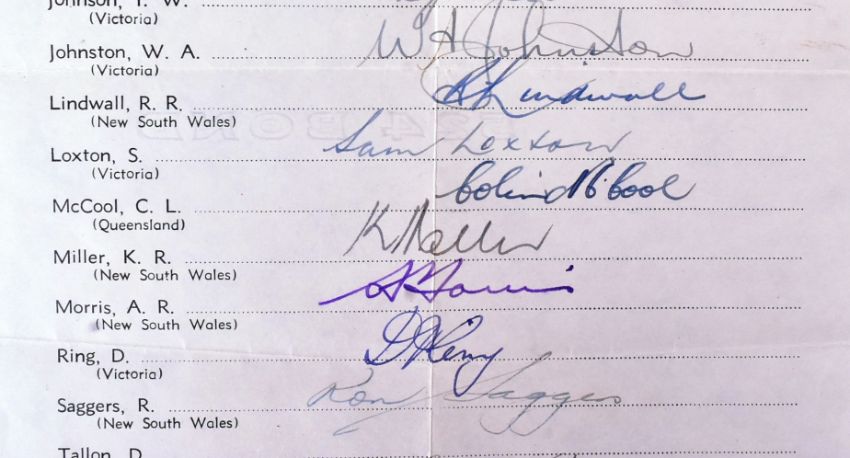 Johnson, I. W.
(Victoria)
Johnston, W. A. W A Johnston
(Victoria)
Lindwall, R. R. R R Lindwall
(New South Wales)
Loxton, S. Sam Loxton
(Victoria)
McCool, C. L. Colin McCool
(Queensland)
Miller, K. R. K Miller
(New South Wales)
Morris, A. R. A R Morris
(New South Wales)
Ring, D. D Ring
(Victoria)
Saggers, R. Ron Saggers
(New South Wales)
Tallon, D.